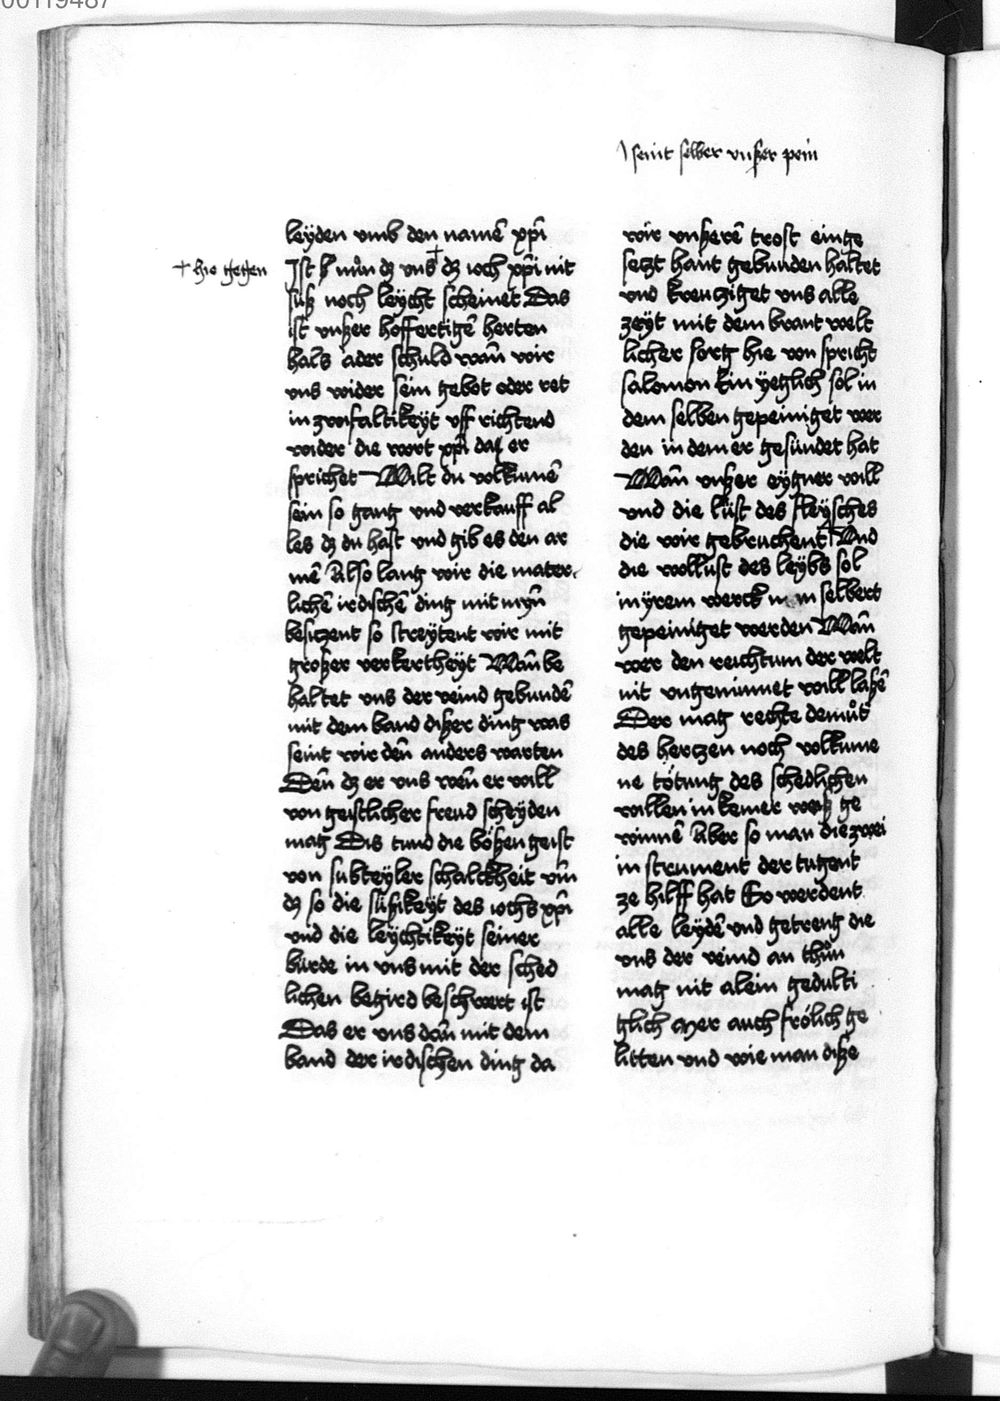 00119487
seint selber vnßer pein
leÿden vmb den namē xp̄i
† hie gegen
Jst ß nün dz vns † dz ioch xp̄i nit
süß noch leÿcht scheinet Das
ist vnßer hoffertigē herten
hals ader schuld wan̄ wir
vns wider sein gebot oder ret
in zwifaltikeÿt vff richtend
wider die wort xp̄i da er
sprichet Wilt du volkumē
sein so gang vnd verkauff al
les dz du hast vnd gib es den ar
mē Also lang wir die mater
lichē irdischē ding mit myn̄
besitzent so streÿtent wir mit
großer verkertheÿt Wan̄ be
haltet vns der veind gebundē
mit dem band dißer ding was
seint wir den̄ anders warten
Den̄ dz er vns wen̄ er will
von geistlicher freud scheÿden
mag Dis tund die bößen geist
von subteÿler schalckheit vm̄
dz so die süßikeÿt des iochs xp̄i
vnd die leÿchtikeÿt seiner
burde in vns mit der sched
lichen begird beschwert ist
Das er vns dan̄ mit dem
band der irdischen ding da
wir vnßerē trost einge
setzt hant gebunden haltet
vnd kreutziget vns alle
zeÿt mit dem brant welt
licher sorg hie von spricht
salomon Ein ÿeglich sol in
dem selben gepeiniget wer
den in dem er gesündet hat
Wan̄ vnßer eÿgner will
vnd die lüst des fleÿsches
die wir gebruchent Vnd
die wollust des leÿbs sol
in ÿrem werck selbert
gepeiniget werden Wan̄
wer den reichtum der welt
nit vngeminnet will laßē
Der mag rechte demůt
des hertzen noch volkume
ne tötung des schedlichen
willen in keiner weiß ge
winnē Aber so man die zwei
in strument der tugent
ze hilff hat So werdent
alle leÿdē vnd getreng die
vns der veind an thůn
mag nit alein gedulti
glich mer auch frölich ge
litten vnd wie man diße